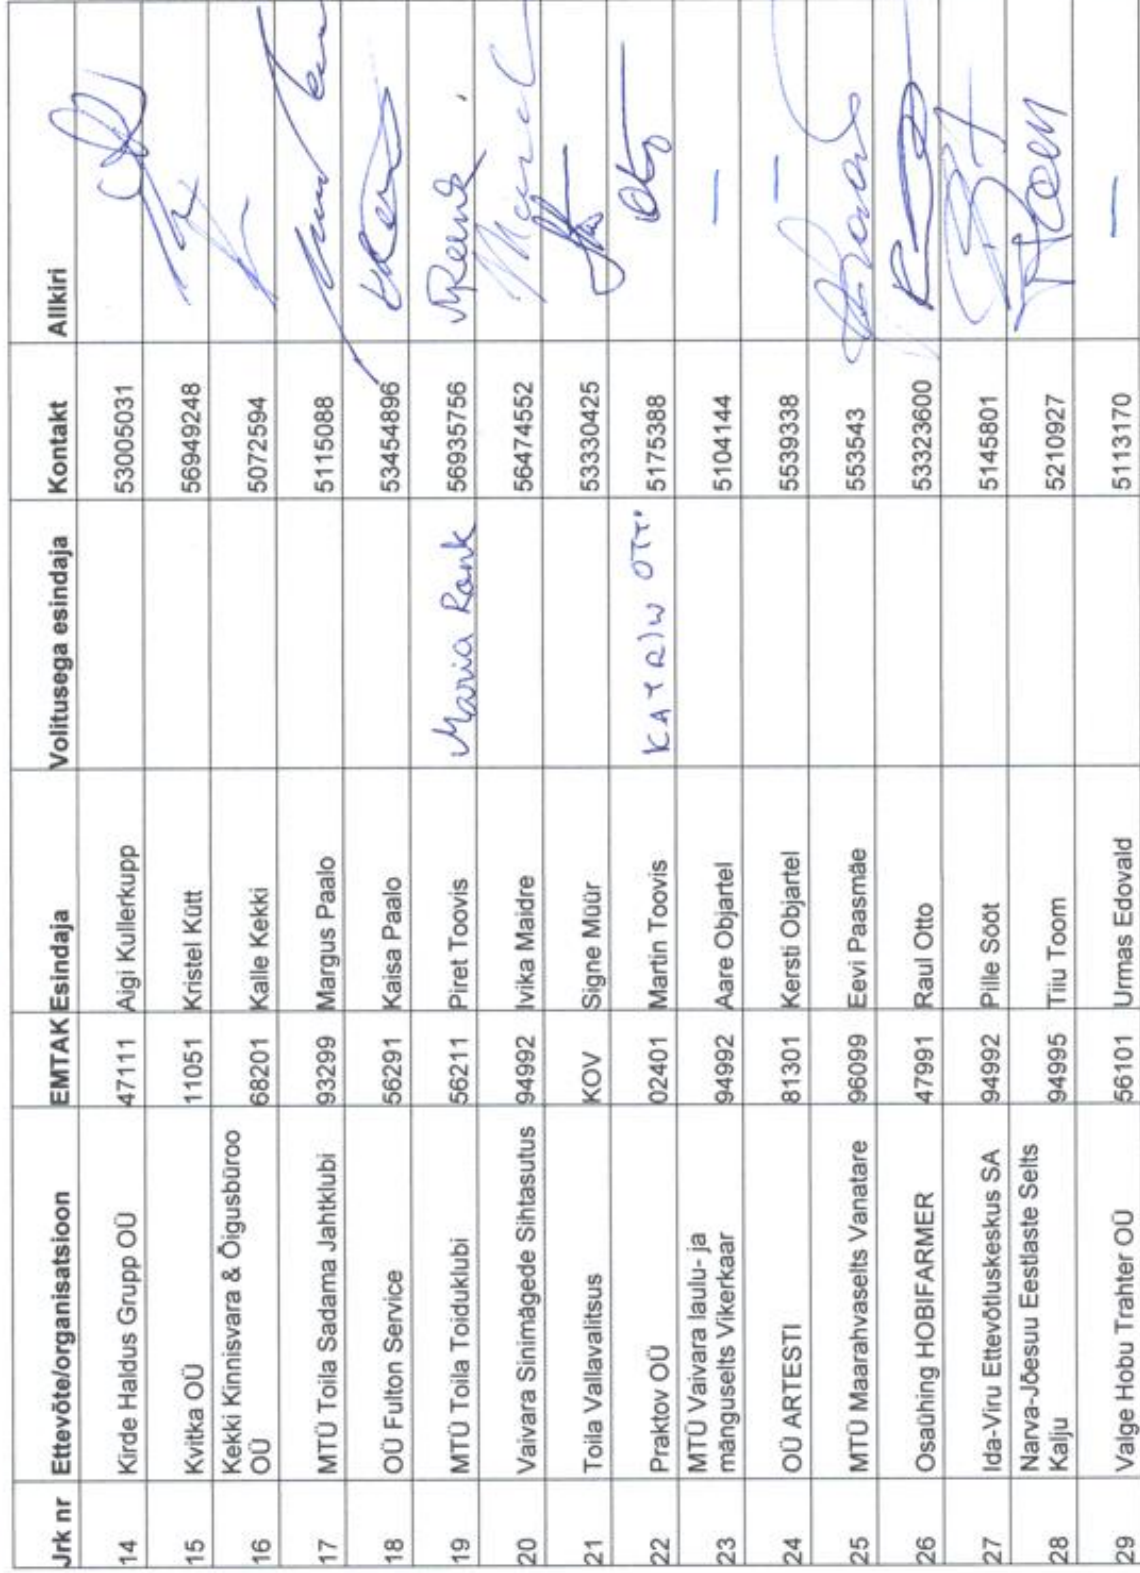 Jrk nr Ettevõte/organisatsioon EMTAK Esindaja Volitusega esindaja Kontakt Allkiri
14 Kirde Haldus Grupp OÜ 47111 Aigi Kullerkupp 53005031
15 Kvitka OÜ 11051 Kristel Kütt 56949248
16 Kekki Kinnisvara & Õigusbüroo OÜ 68201 Kalle Kekki 5072594
17 MTÜ Toila Sadama Jahtklubi 93299 Margus Paalo 5115088
18 OÜ Fulton Service 56291 Kaisa Paalo 53454896
19 MTÜ Toila Toiduklubi 56211 Piret Toovis Maria Ronk 56935756
20 Vaivara Sinimägede Sihtasutus 94992 Ivika Maidre 56474552
21 Toila Vallavalitsus KOV Signe Müür 53330425
22 Praktov OÜ 02401 Martin Toovis KATRIN OTT 5175388
23 MTÜ Vaivara laulu- ja mänguselts Vikerkaar 94992 Aare Objartel 5104144 —
24 OÜ ARTESTI 81301 Kersti Objartel 5539338 —
25 MTÜ Maarahvaselts Vanatare 96099 Eevi Paasmäe 5535543
26 Osaühing HOBIFARMER 47991 Raul Otto 53323600
27 Ida-Viru Ettevõtluskeskus SA 94992 Pille Sööt 5145801
28 Narva-Jõesuu Eestlaste Selts Kalju 94995 Tiiu Toom 5210927
29 Valge Hobu Trahter OÜ 56101 Urmas Edovald 5113170 —